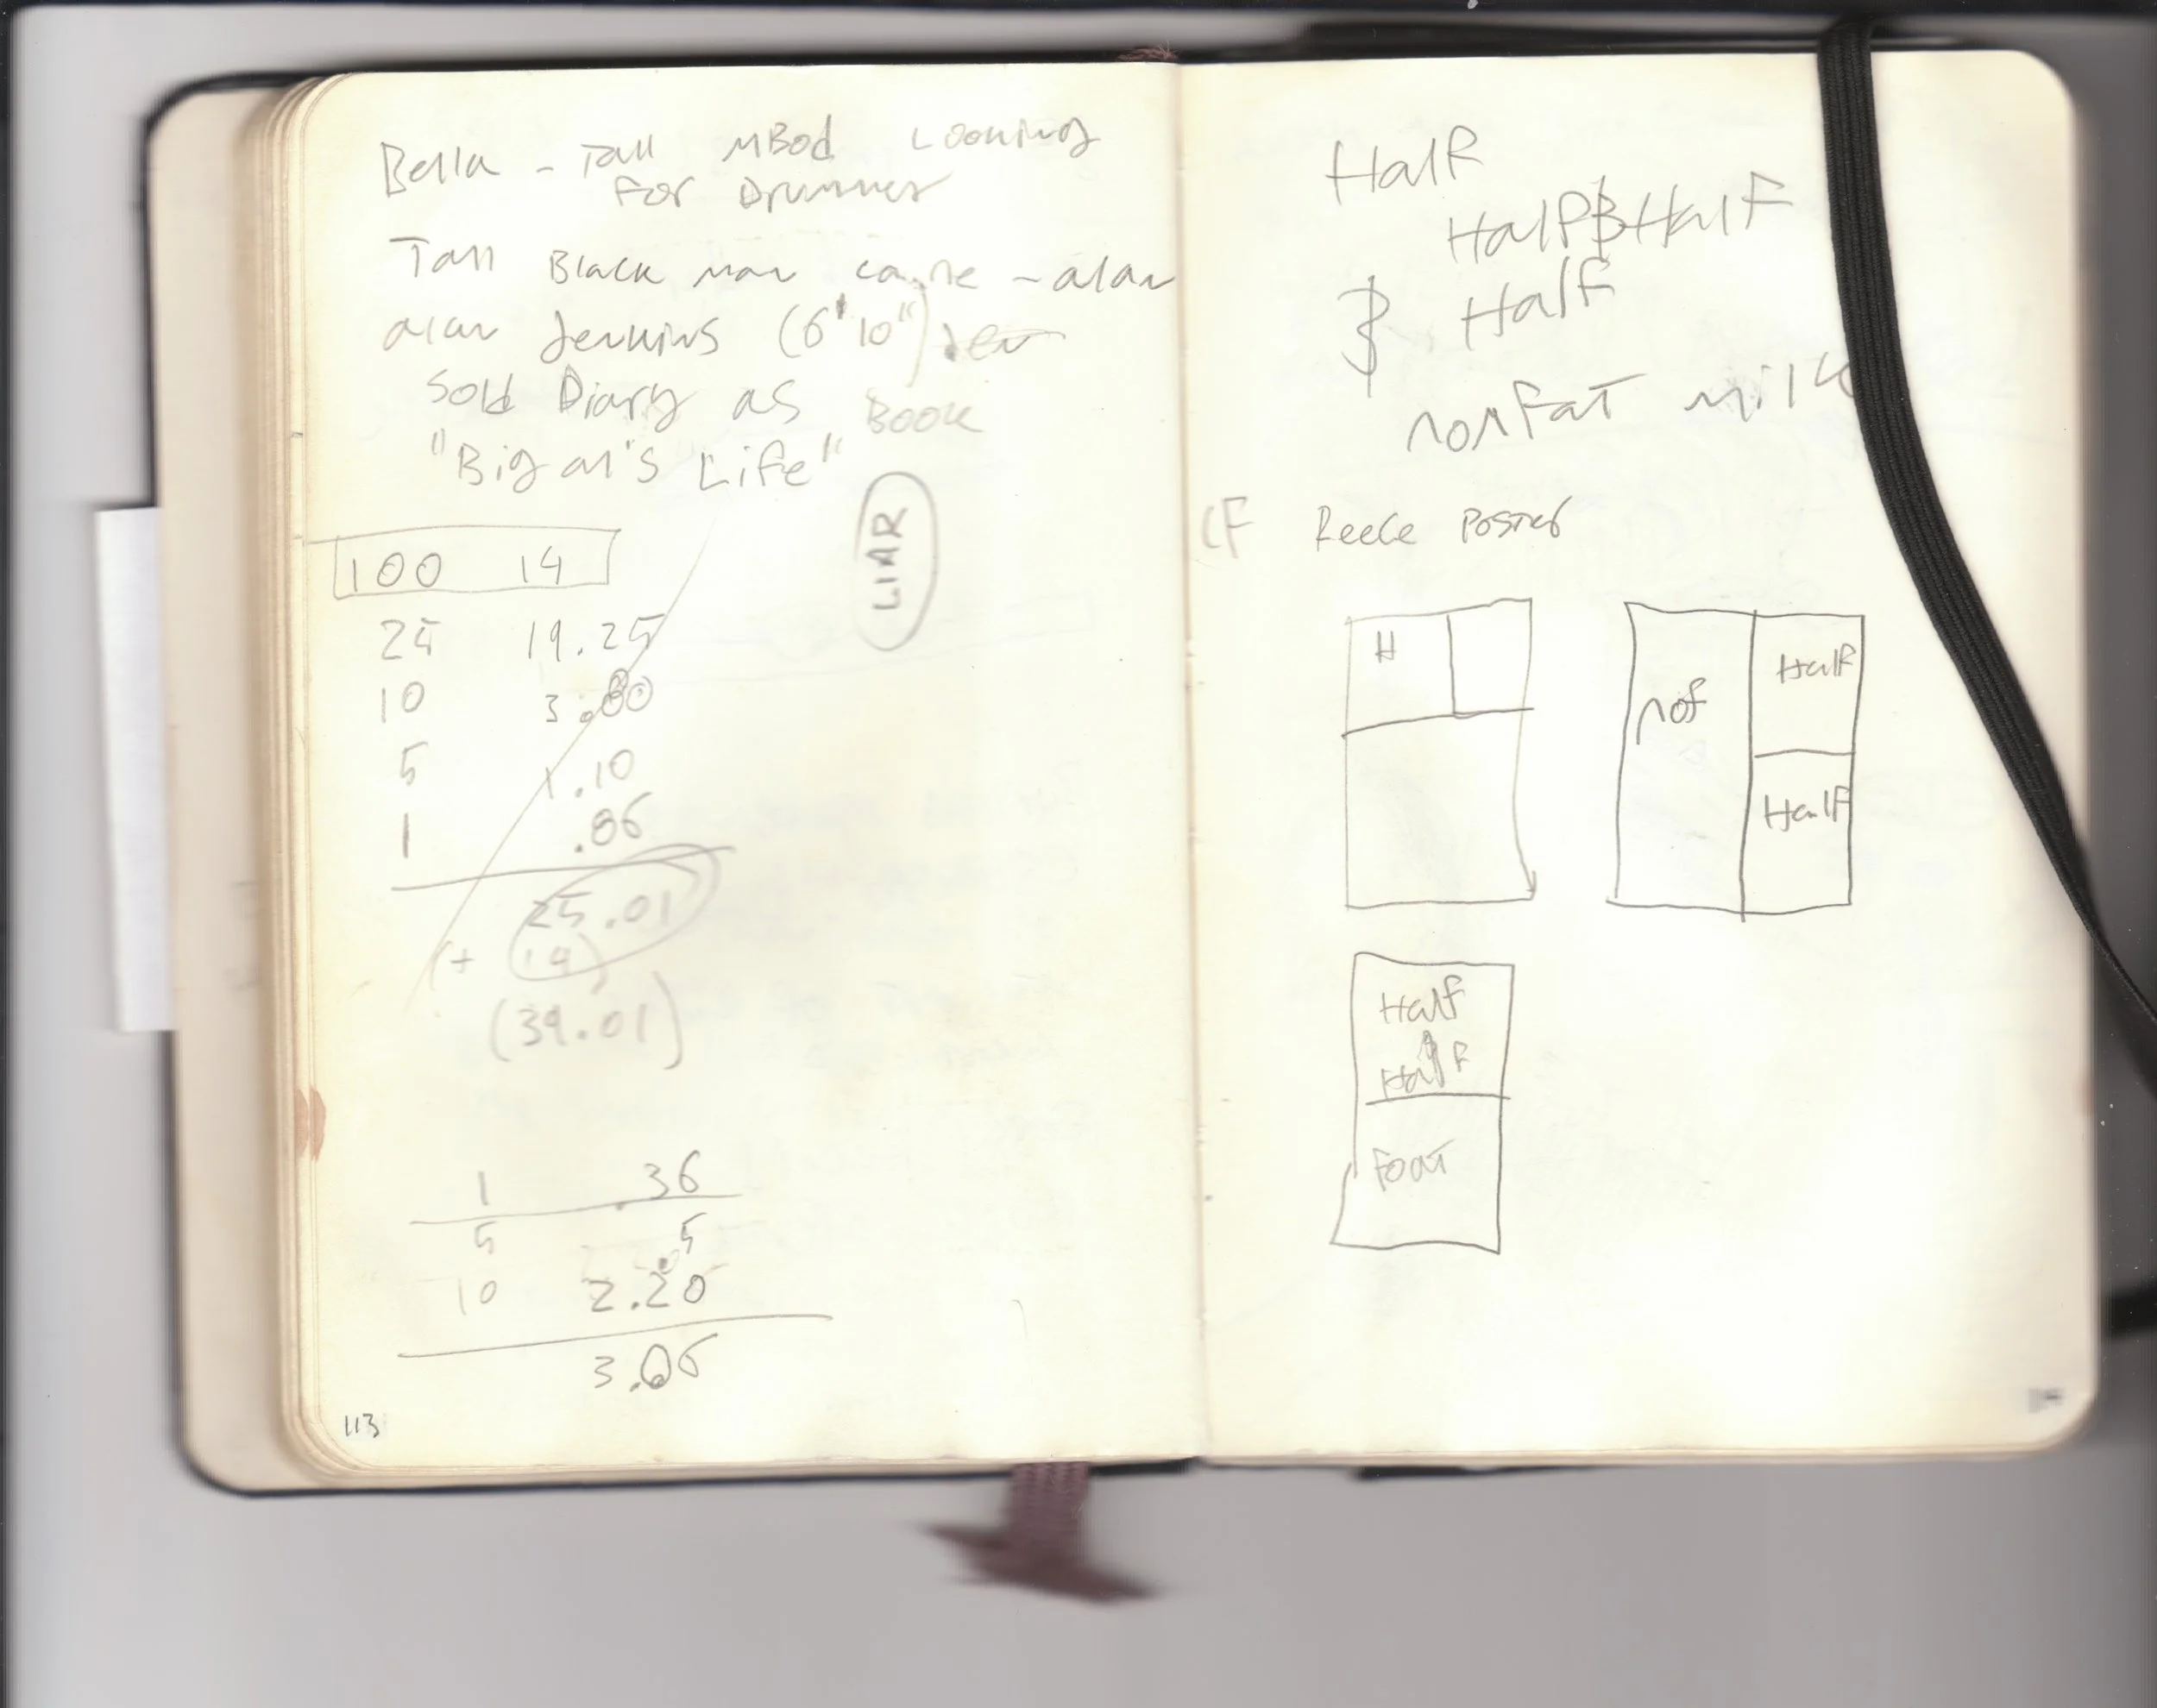 Bella - Tall MBod Looking
For Drummer
Tall Black man came - alan
alan Jenkins (6'10")
Sold Diary as Book
"Big al's Life"
LIAR
100 14
25 19.25
10 3.80
5 1.10
1 .86
25.01
(+ 14)
(39.01)
1 .36
5 .5
10 2.20
3.06
113
Half
Half & Half
& Half
nonfat milk
CF Reece Poster
H
nof
Half
Half
Half
Half